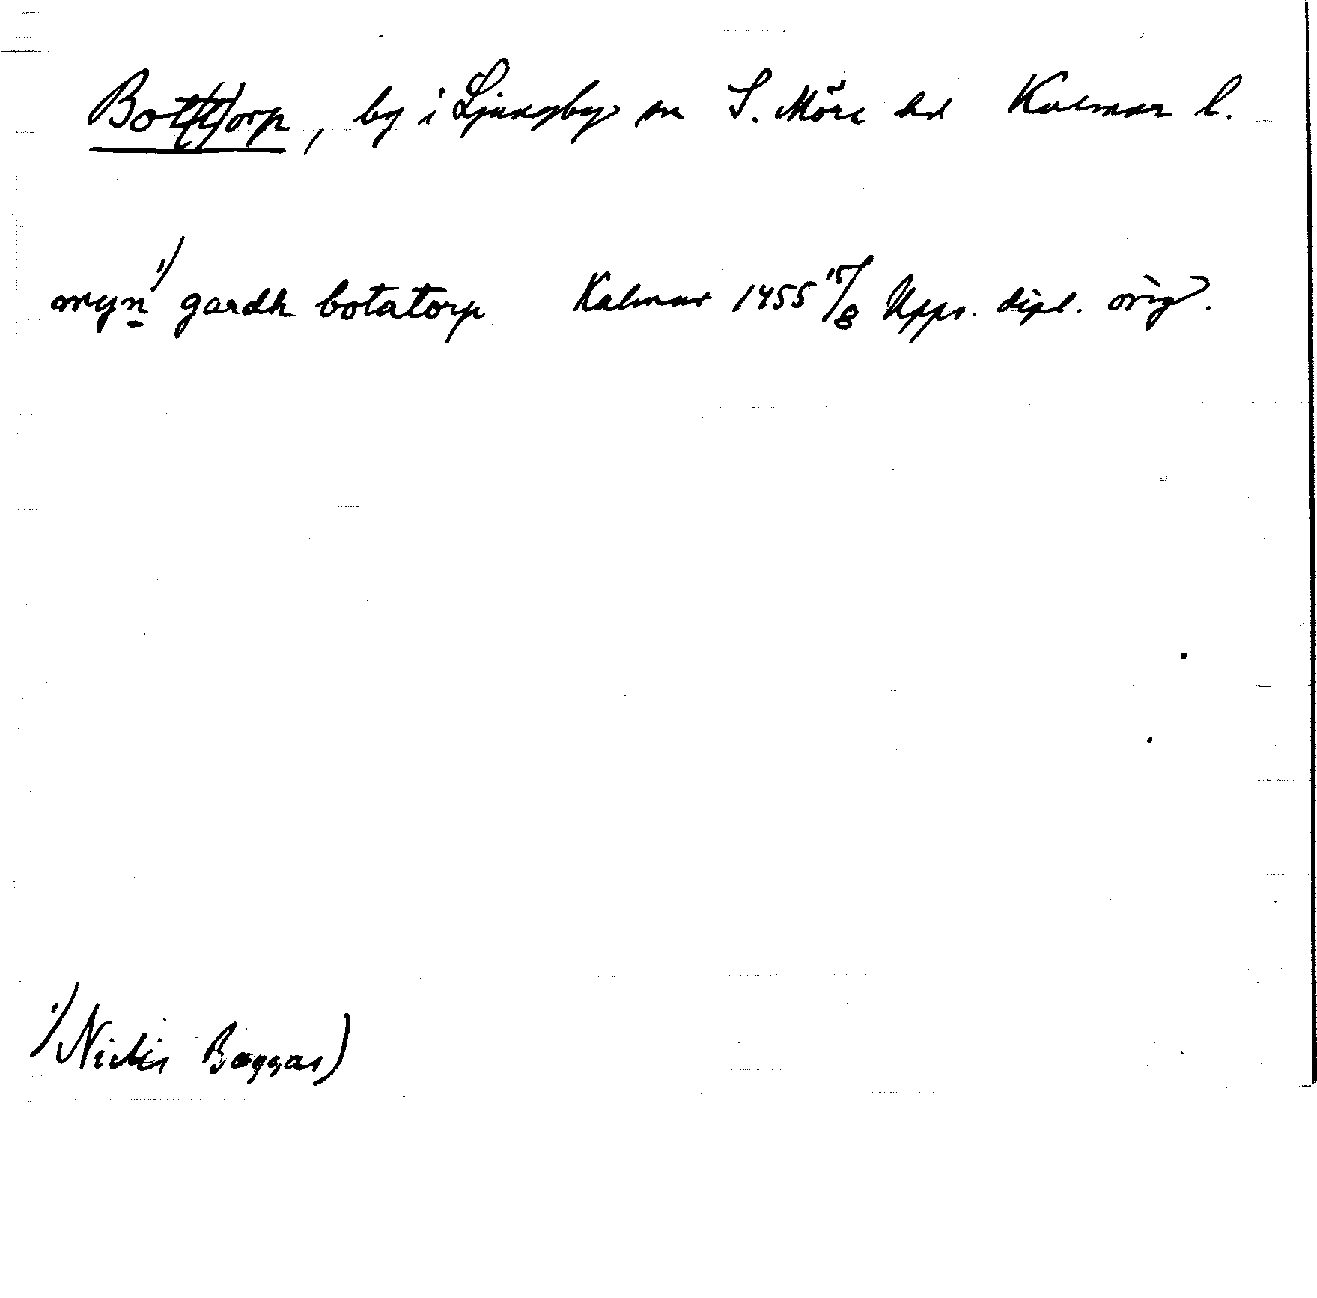 Bot(t)orp, by i Ljungby sn S. Möre hd Kalmar l.
myn 1) gardh botatorp Kalmar 1455 15/8 Upps. dipl. orig.
1) Niclis Baggas)